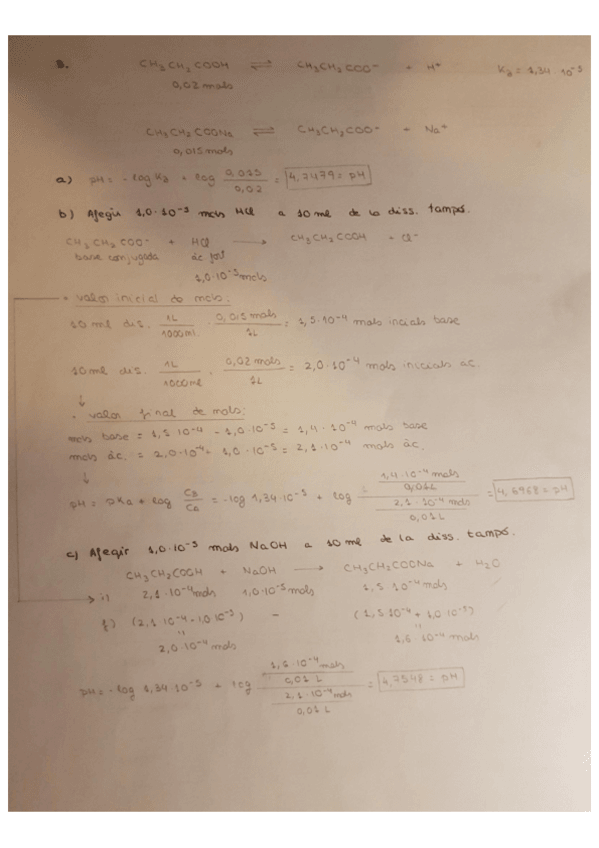 3. CH3CH2COOH ⇌ CH3CH2COO⁻ + H⁺ Ka = 1,34 · 10⁻⁵
0,02 mols
CH3CH2COONa ⇌ CH3CH2COO⁻ + Na⁺
0,015 mols
a) pH = - log Ka + log 0,015/0,02 = 4,7479 = pH
b) Afegir 1,0·10⁻⁵ mols HCl a 10 ml de la diss. tampó.
CH3CH2COO⁻ + HCl ⟶ CH3CH2COOH + Cl⁻
base conjugada àc. fort
1,0·10⁻⁵ mols
• valor inicial de mols:
10 ml dis. · 1L/1000ml · 0,015 mols/1L = 1,5·10⁻⁴ mols incials base
10 ml dis. · 1L/1000ml · 0,02 mols/1L = 2,0·10⁻⁴ mols inicials àc.
↓
• valor final de mols:
mols base = 1,5·10⁻⁴ - 1,0·10⁻⁵ = 1,4·10⁻⁴ mols base
mols àc. = 2,0·10⁻⁴ + 1,0·10⁻⁵ = 2,1·10⁻⁴ mols àc.
↓
pH = pKa + log CB/Ca = -log 1,34·10⁻⁵ + log (1,4·10⁻⁴ mols/0,01L)/(2,1·10⁻⁴ mols/0,01L) = 4,6968 = pH
c) Afegir 1,0·10⁻⁵ mols NaOH a 10 ml de la diss. tampó.
CH3CH2COOH + NaOH ⟶ CH3CH2COONa + H2O
i) 2,1·10⁻⁴ mols 1,0·10⁻⁵ mols 1,5·10⁻⁴ mols
f) (2,1·10⁻⁴ - 1,0·10⁻⁵) - (1,5·10⁻⁴ + 1,0·10⁻⁵)
" "
2,0·10⁻⁴ mols 1,6·10⁻⁴ mols
pH = - log 1,34·10⁻⁵ + log (1,6·10⁻⁴ mols/0,01 L)/(2,1·10⁻⁴ mols/0,01 L) = 4,7548 = pH